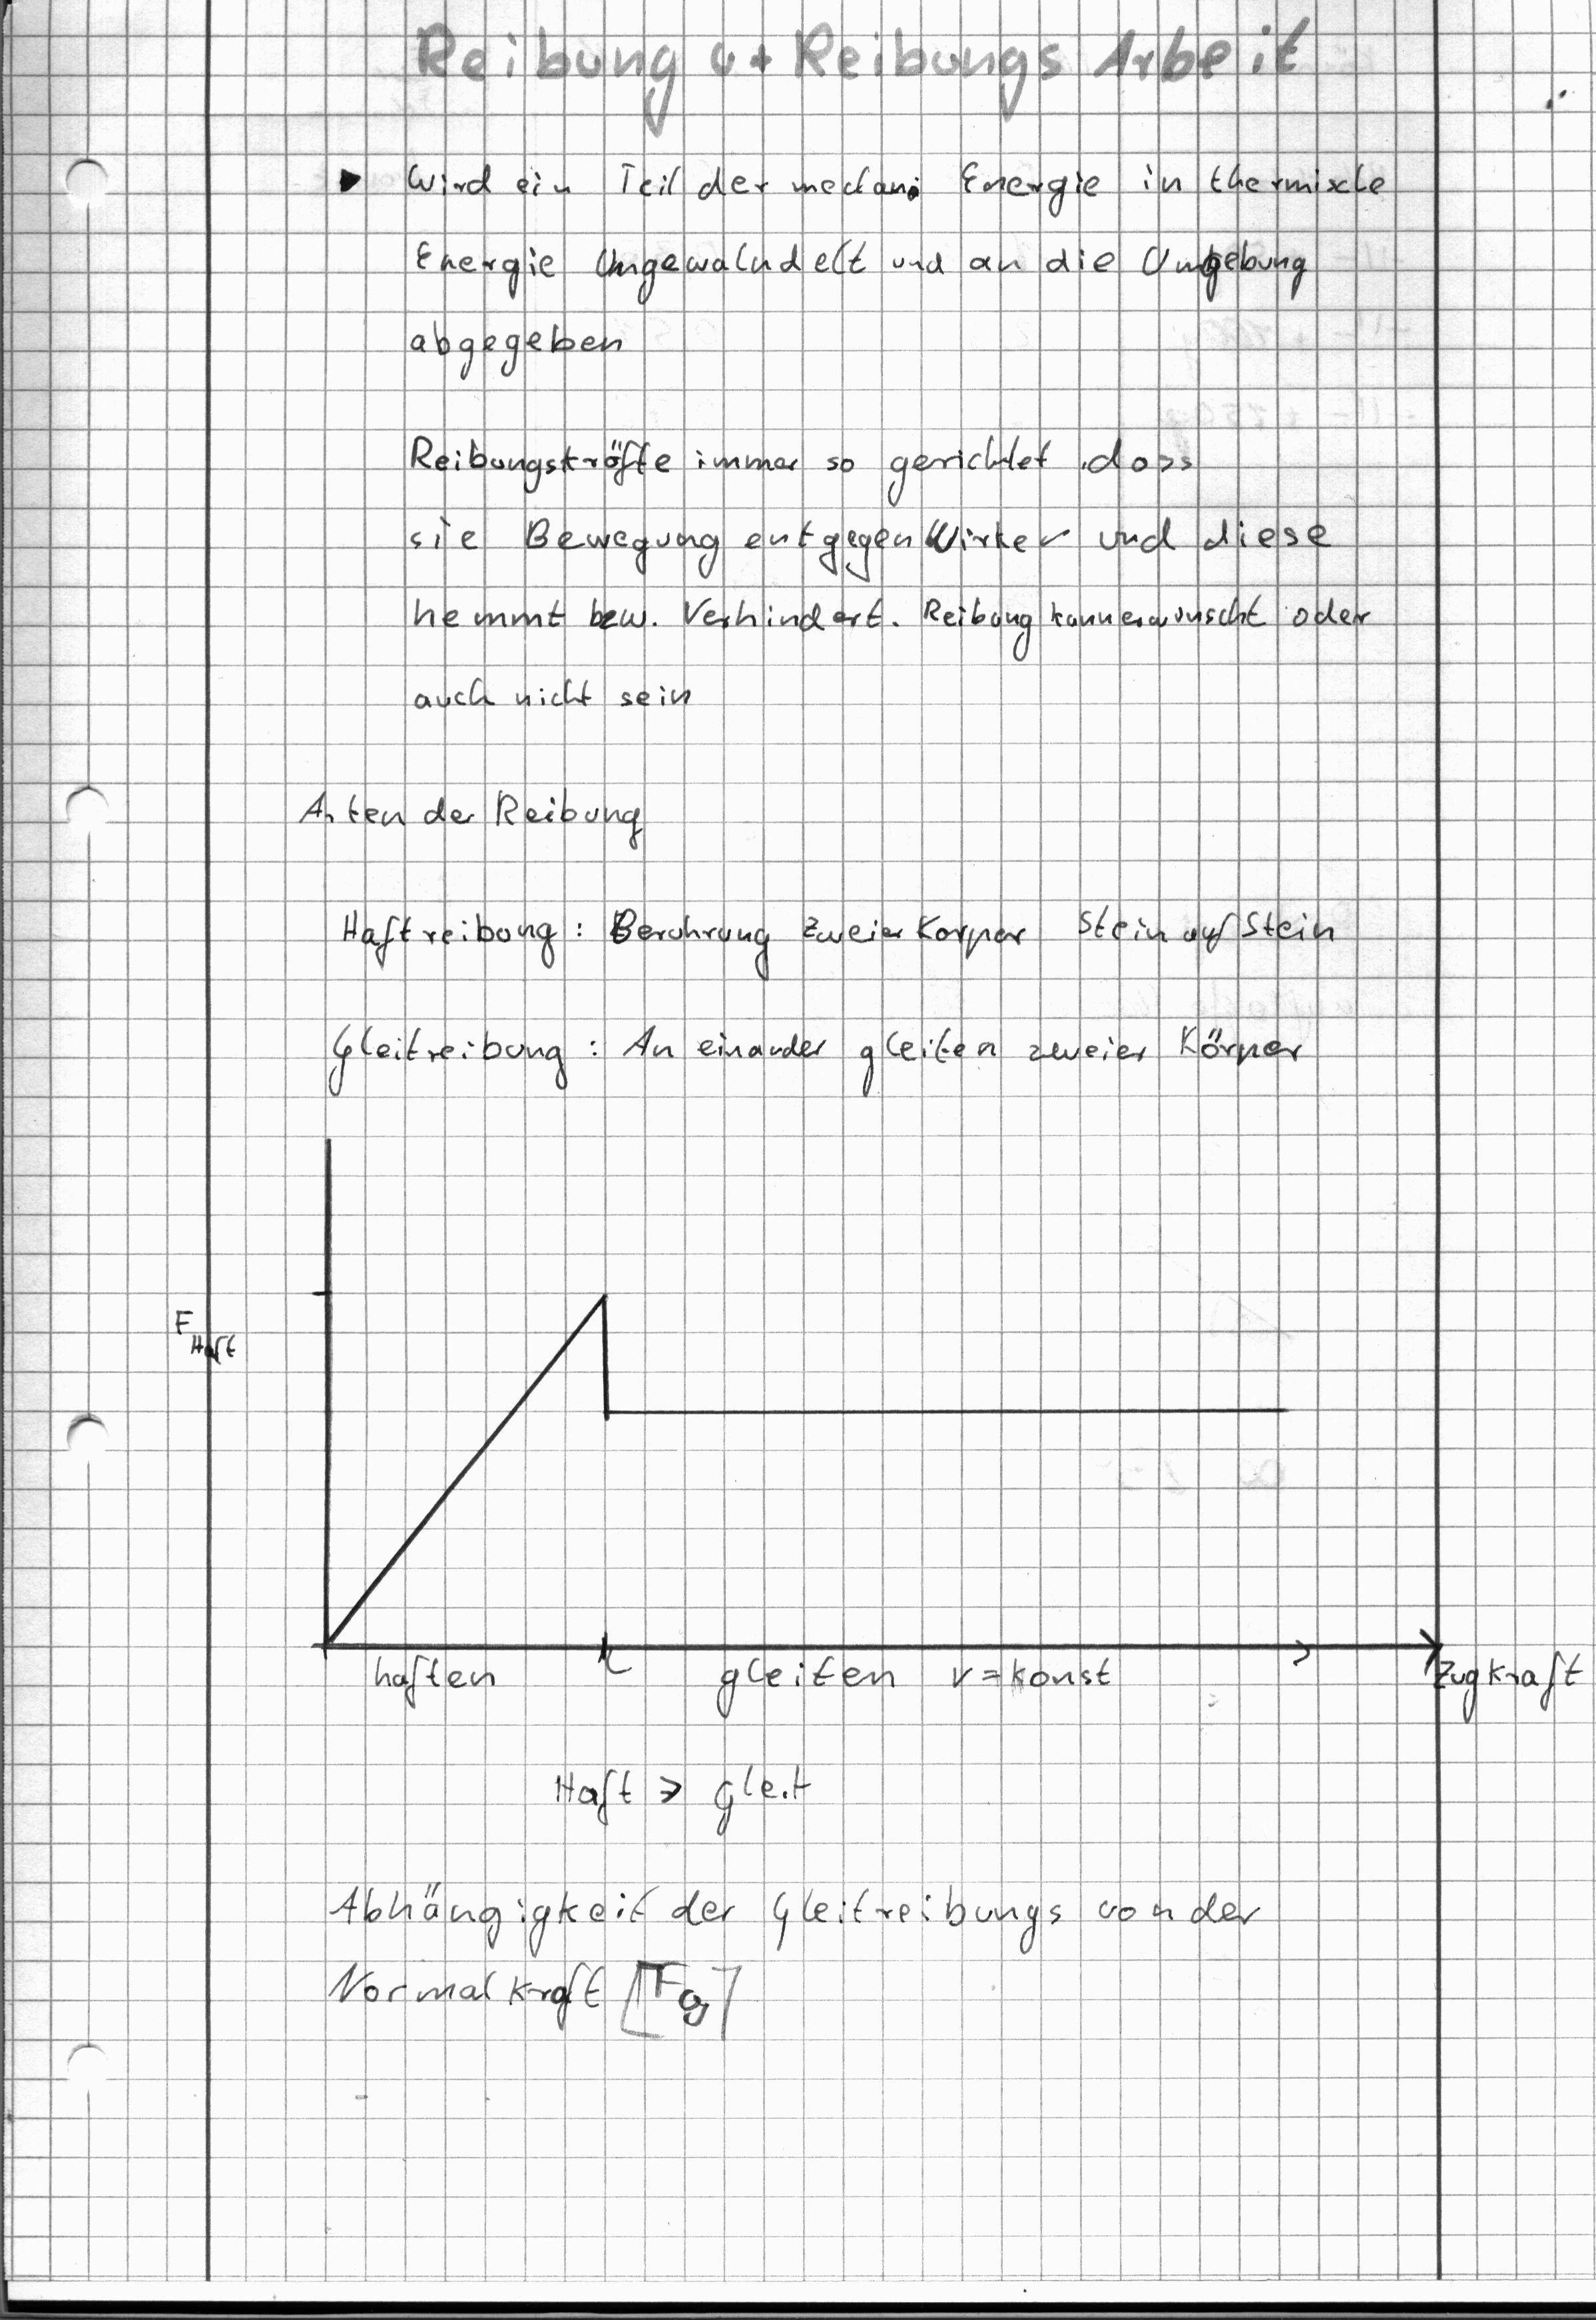 Reibung u+ Reibungs Arbeit
Wird ein Teil der mechani Energie in thermische
Energie Umgewalndelt und an die Umgebung
abgegeben
Reibungskräfte immer so gerichtet dass
sie Bewegung entgegen Wirken und diese
hemmt bzw. Verhindert. Reibung kann erwunscht oder
auch nicht sein
Arten der Reibung
Haftreibung: Beruhrung zweier Korper Stein auf Stein
Gleitreibung: An einander gleiten zweier Körper
F Haft
haften gleiten v = konst Zugkraft
Haft > gleit
Abhängigkeit der Gleitreibungs von der
Normalkraft [FG]